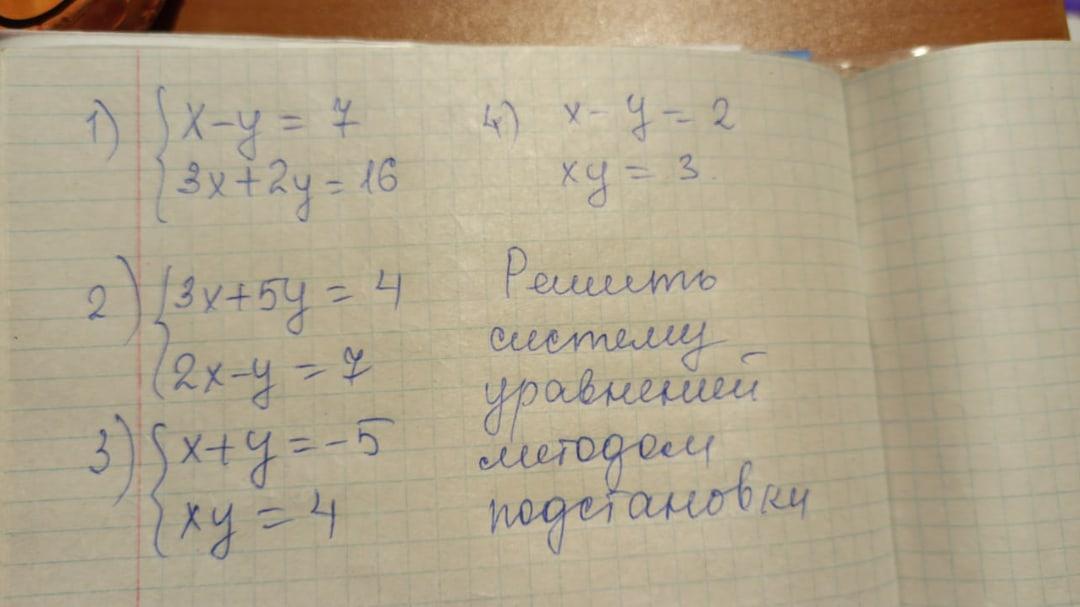 1) x-y = 7
3x+2y=16
4) x-y=2
xy = 3.
2) 3x+5y = 4
2x-y = 7
3) x+y=-5
xy = 4
Решить
систему
уравнений
методом
подстановки